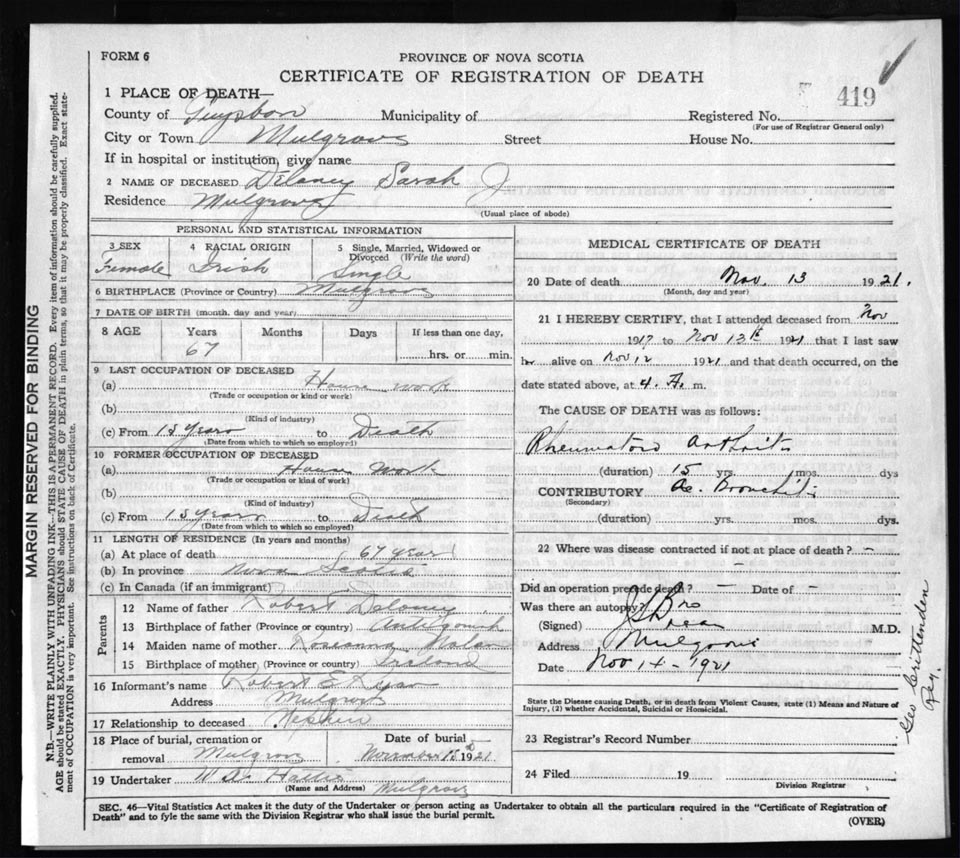 FORM 6
PROVINCE OF NOVA SCOTIA
CERTIFICATE OF REGISTRATION OF DEATH
419
1 PLACE OF DEATH—
County of Guysboro Municipality of Registered No.
(For use of Registrar General only)
City or Town Mulgrave Street House No.
If in hospital or institution, give name
2 NAME OF DECEASED Delaney Sarah J
Residence Mulgrave
(Usual place of abode)
PERSONAL AND STATISTICAL INFORMATION
3 SEX 4 RACIAL ORIGIN 5 Single, Married, Widowed or Divorced (Write the word)
Female Irish Single
6 BIRTHPLACE (Province or Country) Mulgrave
7 DATE OF BIRTH (month, day and year)
8 AGE Years Months Days If less than one day,
67 hrs. or min.
9 LAST OCCUPATION OF DECEASED
(a) House work
(Trade or occupation or kind or work)
(b)
(Kind of industry)
(c) From 15 years to Death
(Date from which to which so employed)
10 FORMER OCCUPATION OF DECEASED
(a) House work
(Trade or occupation or kind of work)
(b)
(Kind of industry)
(c) From 15 years to Death
(Date from which to which so employed)
11 LENGTH OF RESIDENCE (In years and months)
(a) At place of death 67 year
(b) In province Nova Scotia
(c) In Canada (if an immigrant)
Parents
12 Name of father Robert Delaney
13 Birthplace of father (Province or country) Antigonish
14 Maiden name of mother Nolan
15 Birthplace of mother (Province or country) Ireland
16 Informant's name Robert E
Address Mulgrave
17 Relationship to deceased Nephew
18 Place of burial, cremation or removal Mulgrave Date of burial November 15 1921
19 Undertaker
(Name and Address) Mulgrave
MEDICAL CERTIFICATE OF DEATH
20 Date of death Nov. 13 1921.
(Month, day and year)
21 I HEREBY CERTIFY, that I attended deceased from Nov
1917 to Nov 13th 1921 that I last saw
her alive on Nov 12 1921 and that death occurred, on the
date stated above, at 4. A. m.
The CAUSE OF DEATH was as follows:
Rheumatoid Arthritis
(duration) 15 yrs. mos. dys
CONTRIBUTORY Ac. Bronchitis
(Secondary)
(duration) yrs. mos. dys.
22 Where was disease contracted if not at place of death? —
Did an operation precede death? Date of —
Was there an autopsy?
(Signed) M.D.
Address Mulgrave
Date Nov 14 - 1921
State the Disease causing Death, or in death from Violent Causes, state (1) Means and Nature of
Injury, (2) whether Accidental, Suicidal or Homicidal.
23 Registrar's Record Number
24 Filed 19
Division Registrar
Geo Crittenden
Reg.
SEC. 46—Vital Statistics Act makes it the duty of the Undertaker or person acting as Undertaker to obtain all the particulars required in the "Certificate of Registration of
Death" and to fyle the same with the Division Registrar who shall issue the burial permit.
(OVER)
MARGIN RESERVED FOR BINDING
N.B.—WRITE PLAINLY WITH UNFADING INK—THIS IS A PERMANENT RECORD. Every item of information should be carefully supplied.
AGE should be stated EXACTLY. PHYSICIANS should STATE CAUSE OF DEATH in plain terms, so that it may be properly classified. Exact state-
ment of OCCUPATION is very important. See instructions on back of Certificate.